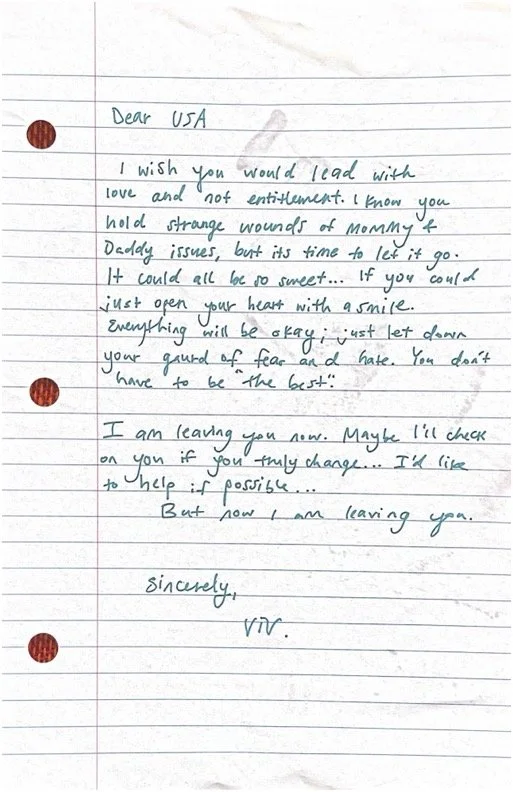 Dear USA
I wish you would lead with
love and not entitlement. I know you
hold strange wounds of mommy &
Daddy issues, but its time to let it go.
It could all be so sweet... If you could
just open your heart with a smile.
Everything will be okay; just let down
your gaurd of fear and hate. You don't
have to be "the best".
I am leaving you now. Maybe I'll check
on you if you truly change... I'd like
to help if possible...
But now I am leaving you.
Sincerely,
VIV.